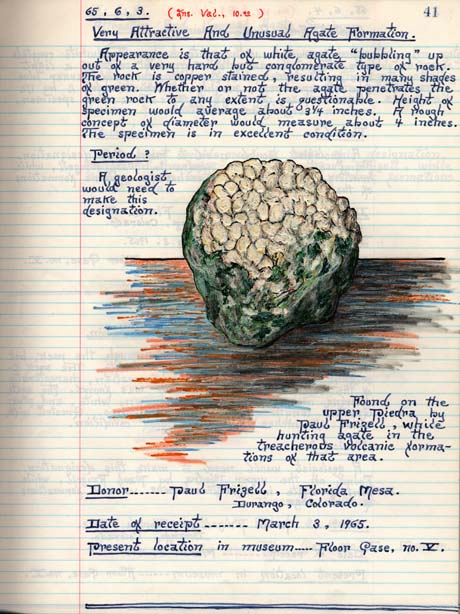 65, 6, 3. (Ins. Val., 10.00) 41
Very Attractive And Unusual Agate Formation.
Appearance is that of white agate "bubbling" up
out of a very hard but conglomerate type of rock.
The rock is copper stained, resulting in many shades
of green. Whether or not the agate penetrates the
green rock to any extent is questionable. Height of
specimen would average about 3¼ inches. A rough
concept of diameter would measure about 4 inches.
The specimen is in excellent condition.
Period?
A geologist
would need to
make this
designation.
Found on the
upper Piedra by
Paul Frizell, while
hunting agate in the
treacherous volcanic forma-
tions of that area.
Donor------ Paul Frizell, Florida Mesa.
Durango, Colorado.
Date of receipt------- March 3, 1965.
Present location in museum---- Floor Case, no. V.